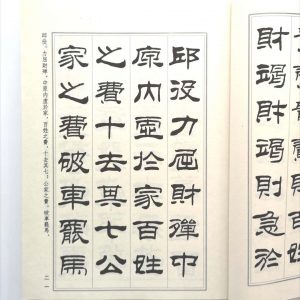 財竭財竭則急於
邱役力屈財殫中
原内虛於家百姓
之費十去其七公
家之費破車罷馬
邱役。力屈財殫,中原内虛於家,百姓之費,十去其七;公家之費,破車罷馬,
二一